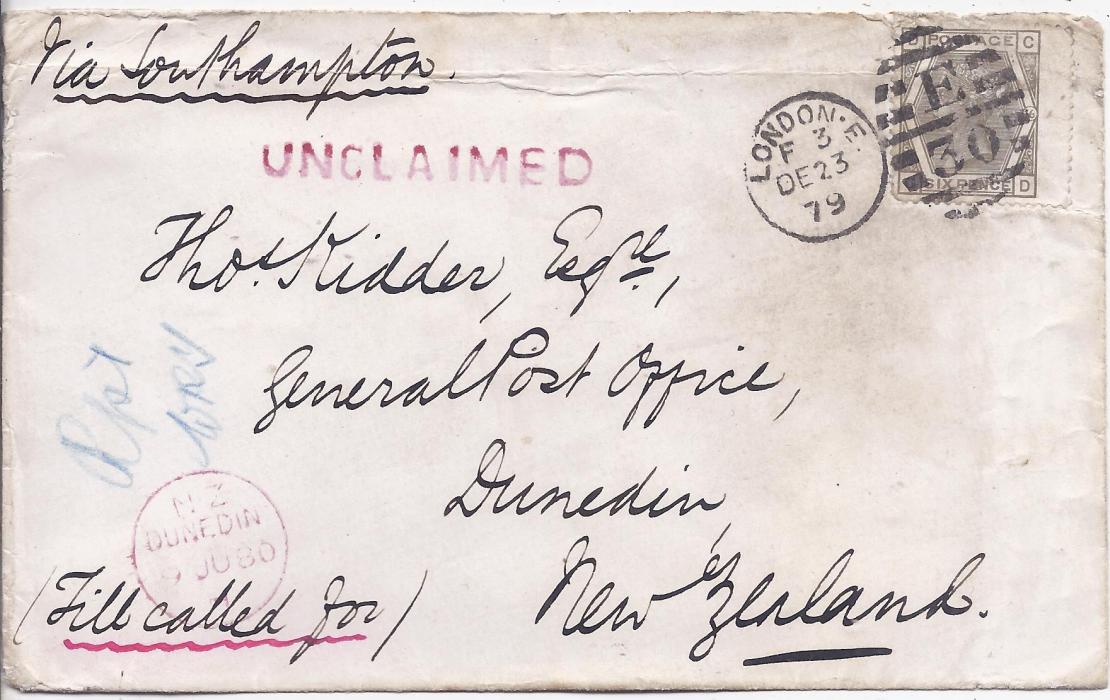 Via Southampton.
D POSTAGE C
E
30
SIX PENCE D
LONDON·E.
F 3
DE 23
79
UNCLAIMED
Thos. Kidder, Esqre.,
General Post Office,
Dunedin,
New Zealand.
N.Z
DUNEDIN
9 JU 80
(Till called for)